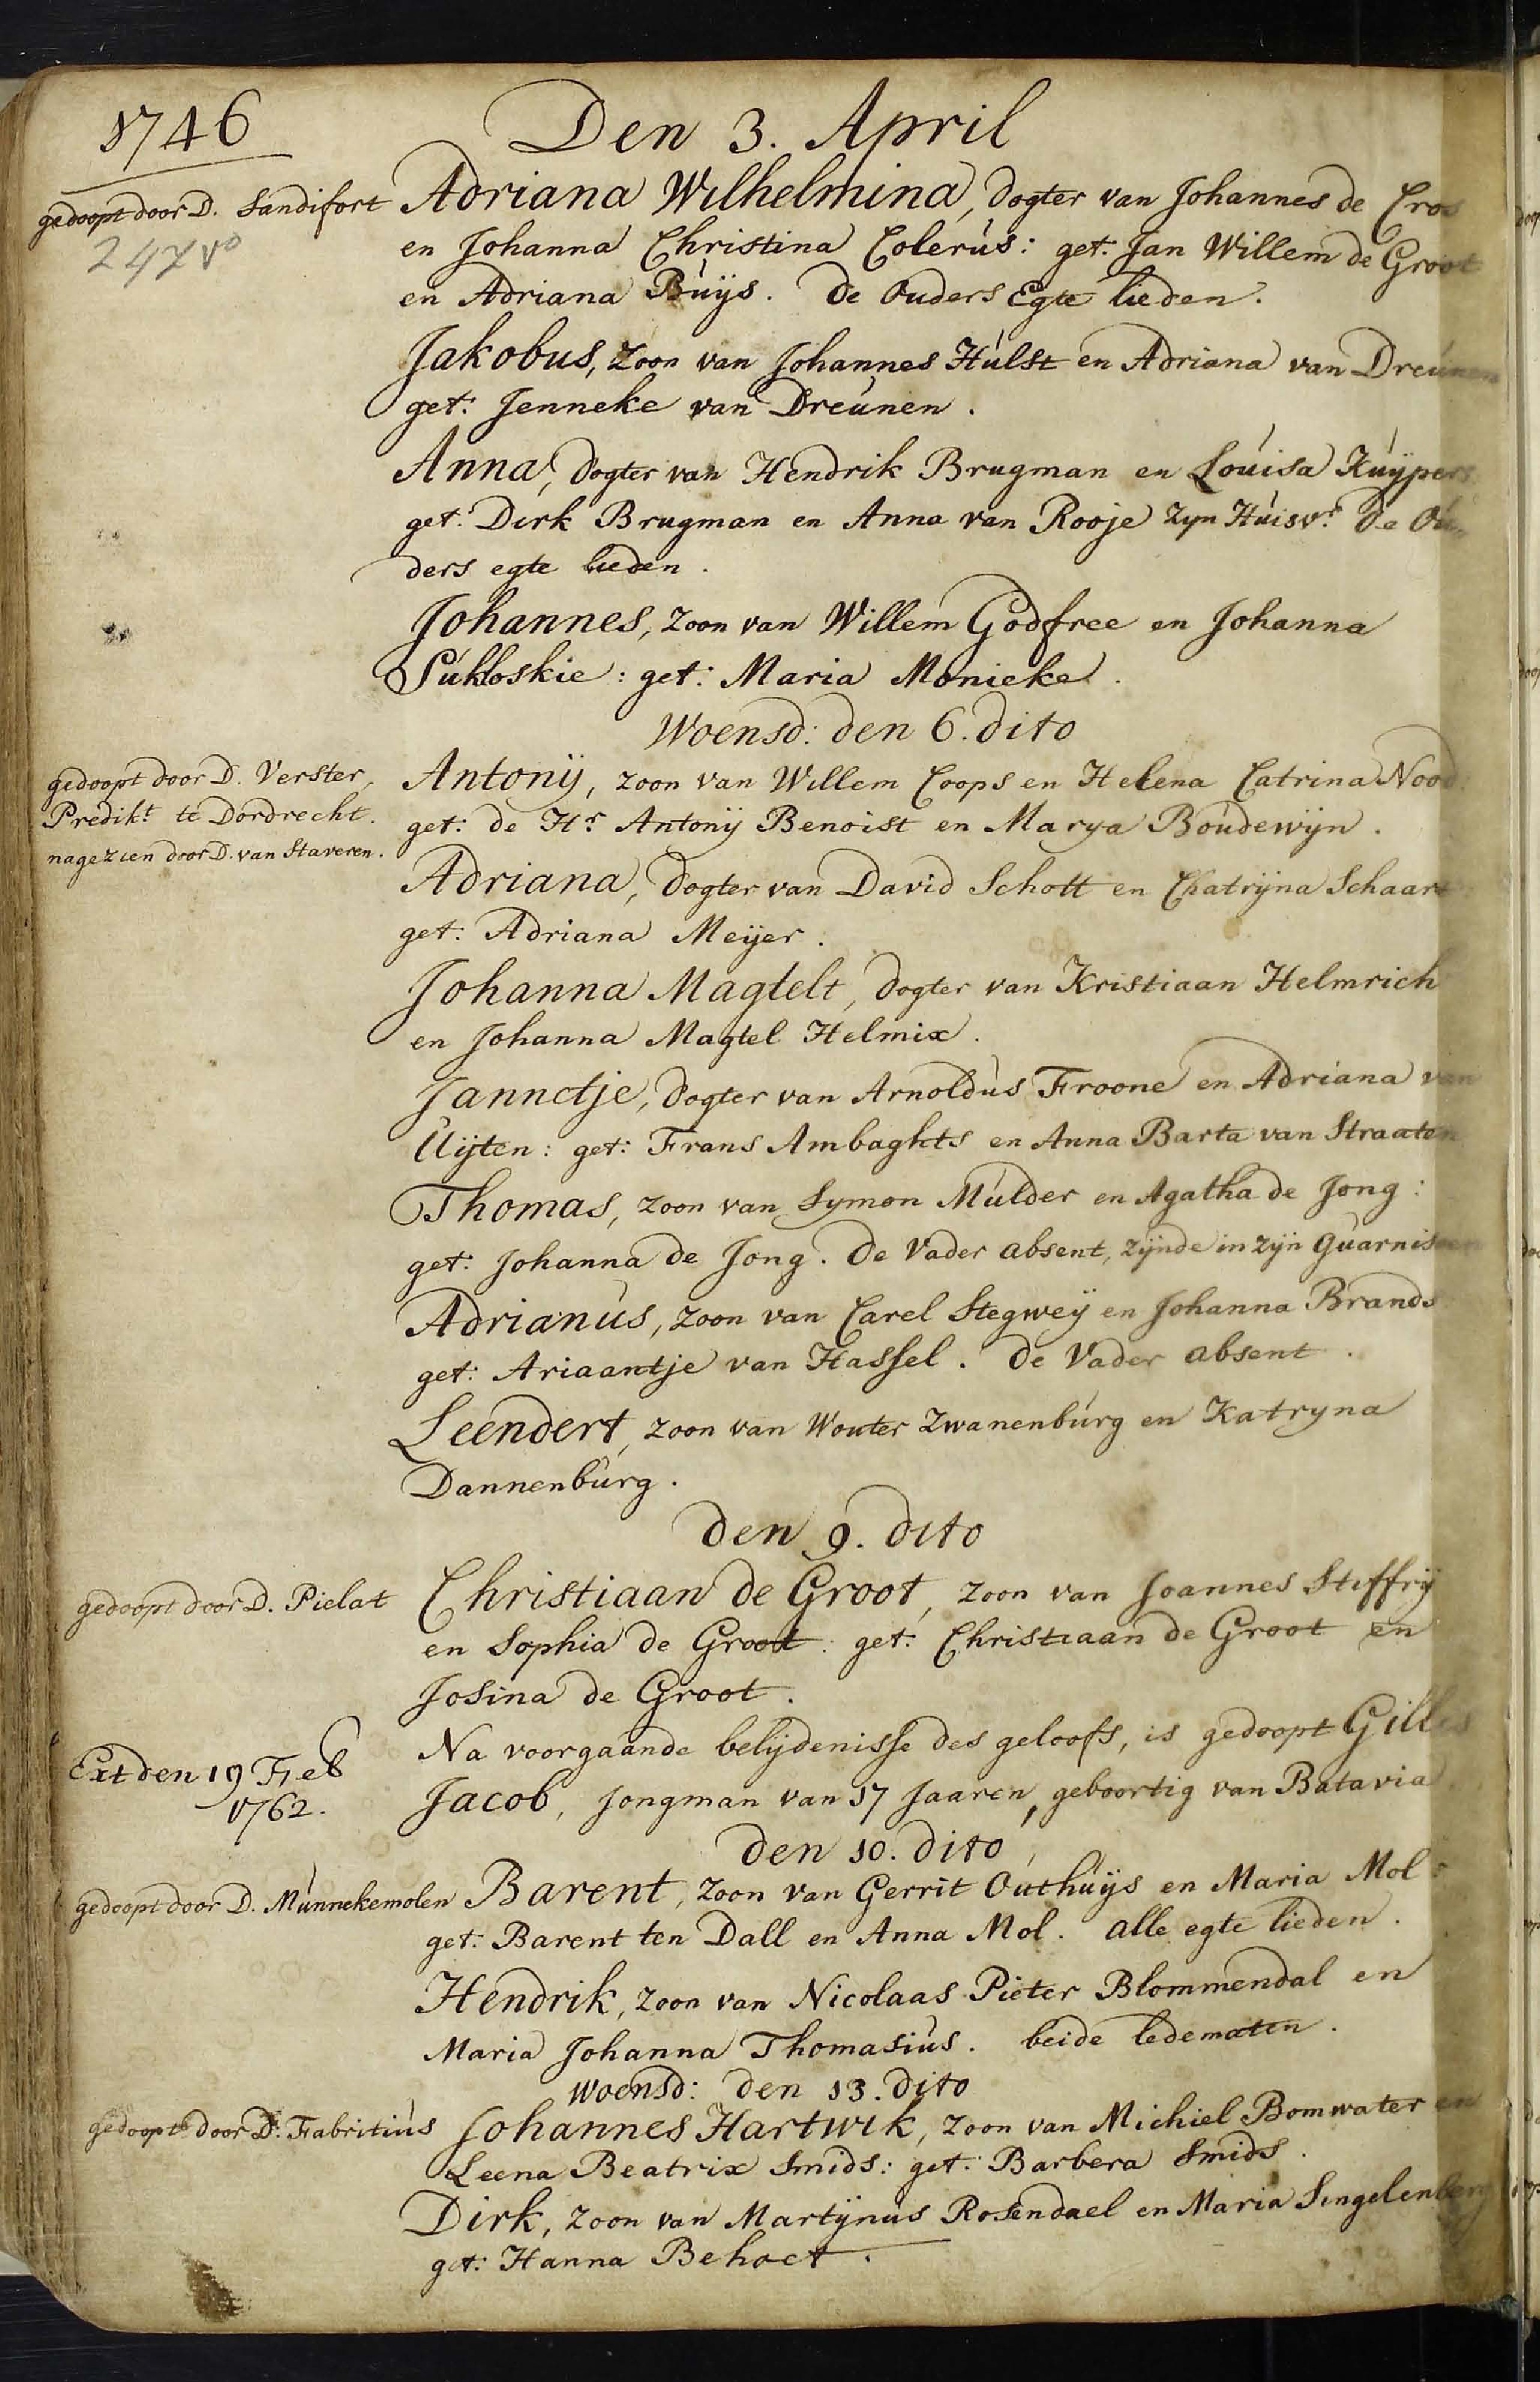 1746
Den 3. April
gedoopt door D. Sandifort
247 vo
Adriana Wilhelmina, dogter van Johannes de Cros
en Johanna Christina Colerús: get: Jan Willem de Groot
en Adriana Búÿs. De Ouders Egte lieden.
Jakobus, zoon van Johannes Húlst en Adriana van Dreúnen
get: Jenneke van Dreúnen.
Anna, dogter van Hendrik Brugman en Loúisa Kúÿpers
get: Dirk Brugman en Anna van Rooje zyn Húisvr. De Oú-
ders egte lieden.
Johannes, zoon van Willem Godfree en Johanna
Súkloskie: get: Maria Monieke.
Woensd: den 6. dito
gedoopt door D. Verster,
Predikt te Dordrecht.
nagezien door D. van Staveren.
Antonÿ, zoon van Willem Coops en Helena Catrina Nood:
get: de Hr Antonÿ Benoist en Marya Boúdewÿn.
Adriana, dogter van David Schott en Chatrÿna Schaart
get: Adriana Meÿer.
Johanna Magtelt, dogter van Kristiaan Helmrich
en Johanna Magtel Helmix.
Jannetje, dogter van Arnoldús Froone en Adriana van
Úÿten: get: Frans Ambaghts en Anna Barta van Straaten
Thomas, zoon van Symon Múlder en Agatha de Jong:
get: Johanna de Jong. De Vader absent, zÿnde in zÿn Guarnisoen
Adrianús, zoon van Carel Stegweÿ en Johanna Brands
get: Ariaantje van Hassel. De Vader absent.
Leendert, zoon van Wouter Zwanenbúrg en Katryna
Dannenbúrg.
den 9. dito
gedoopt door D. Pielat
Christiaan de Groot, zoon van Joannes Stiffrÿ
en Sophia de Groot: get: Christiaan de Groot en
Josina de Groot.
Ext den 19 Feb
1762.
Na voorgaande belÿdenisse des geloofs, is gedoopt Gilles
Jacob, Jongman van 17 Jaaren, geboortig van Batavia.
den 10. dito
gedoopt door D. Múnnekemolen
Barent, zoon van Gerrit Outhúÿs en Maria Mol:
get: Barent ten Dall en Anna Mol. alle egte lieden.
Hendrik, zoon van Nicolaas Pieter Blommendal en
Maria Johanna Thomasiús. beide ledematen.
Woensd: den 13. dito
gedoopt door D: Fabritiús
Johannes Hartwik, zoon van Michiel Bomwater en
Leena Beatrix Smids: get: Barbera Smids.
Dirk, zoon van Martÿnús Rosendael en Maria Singelenberg
get: Hanna Behoet.